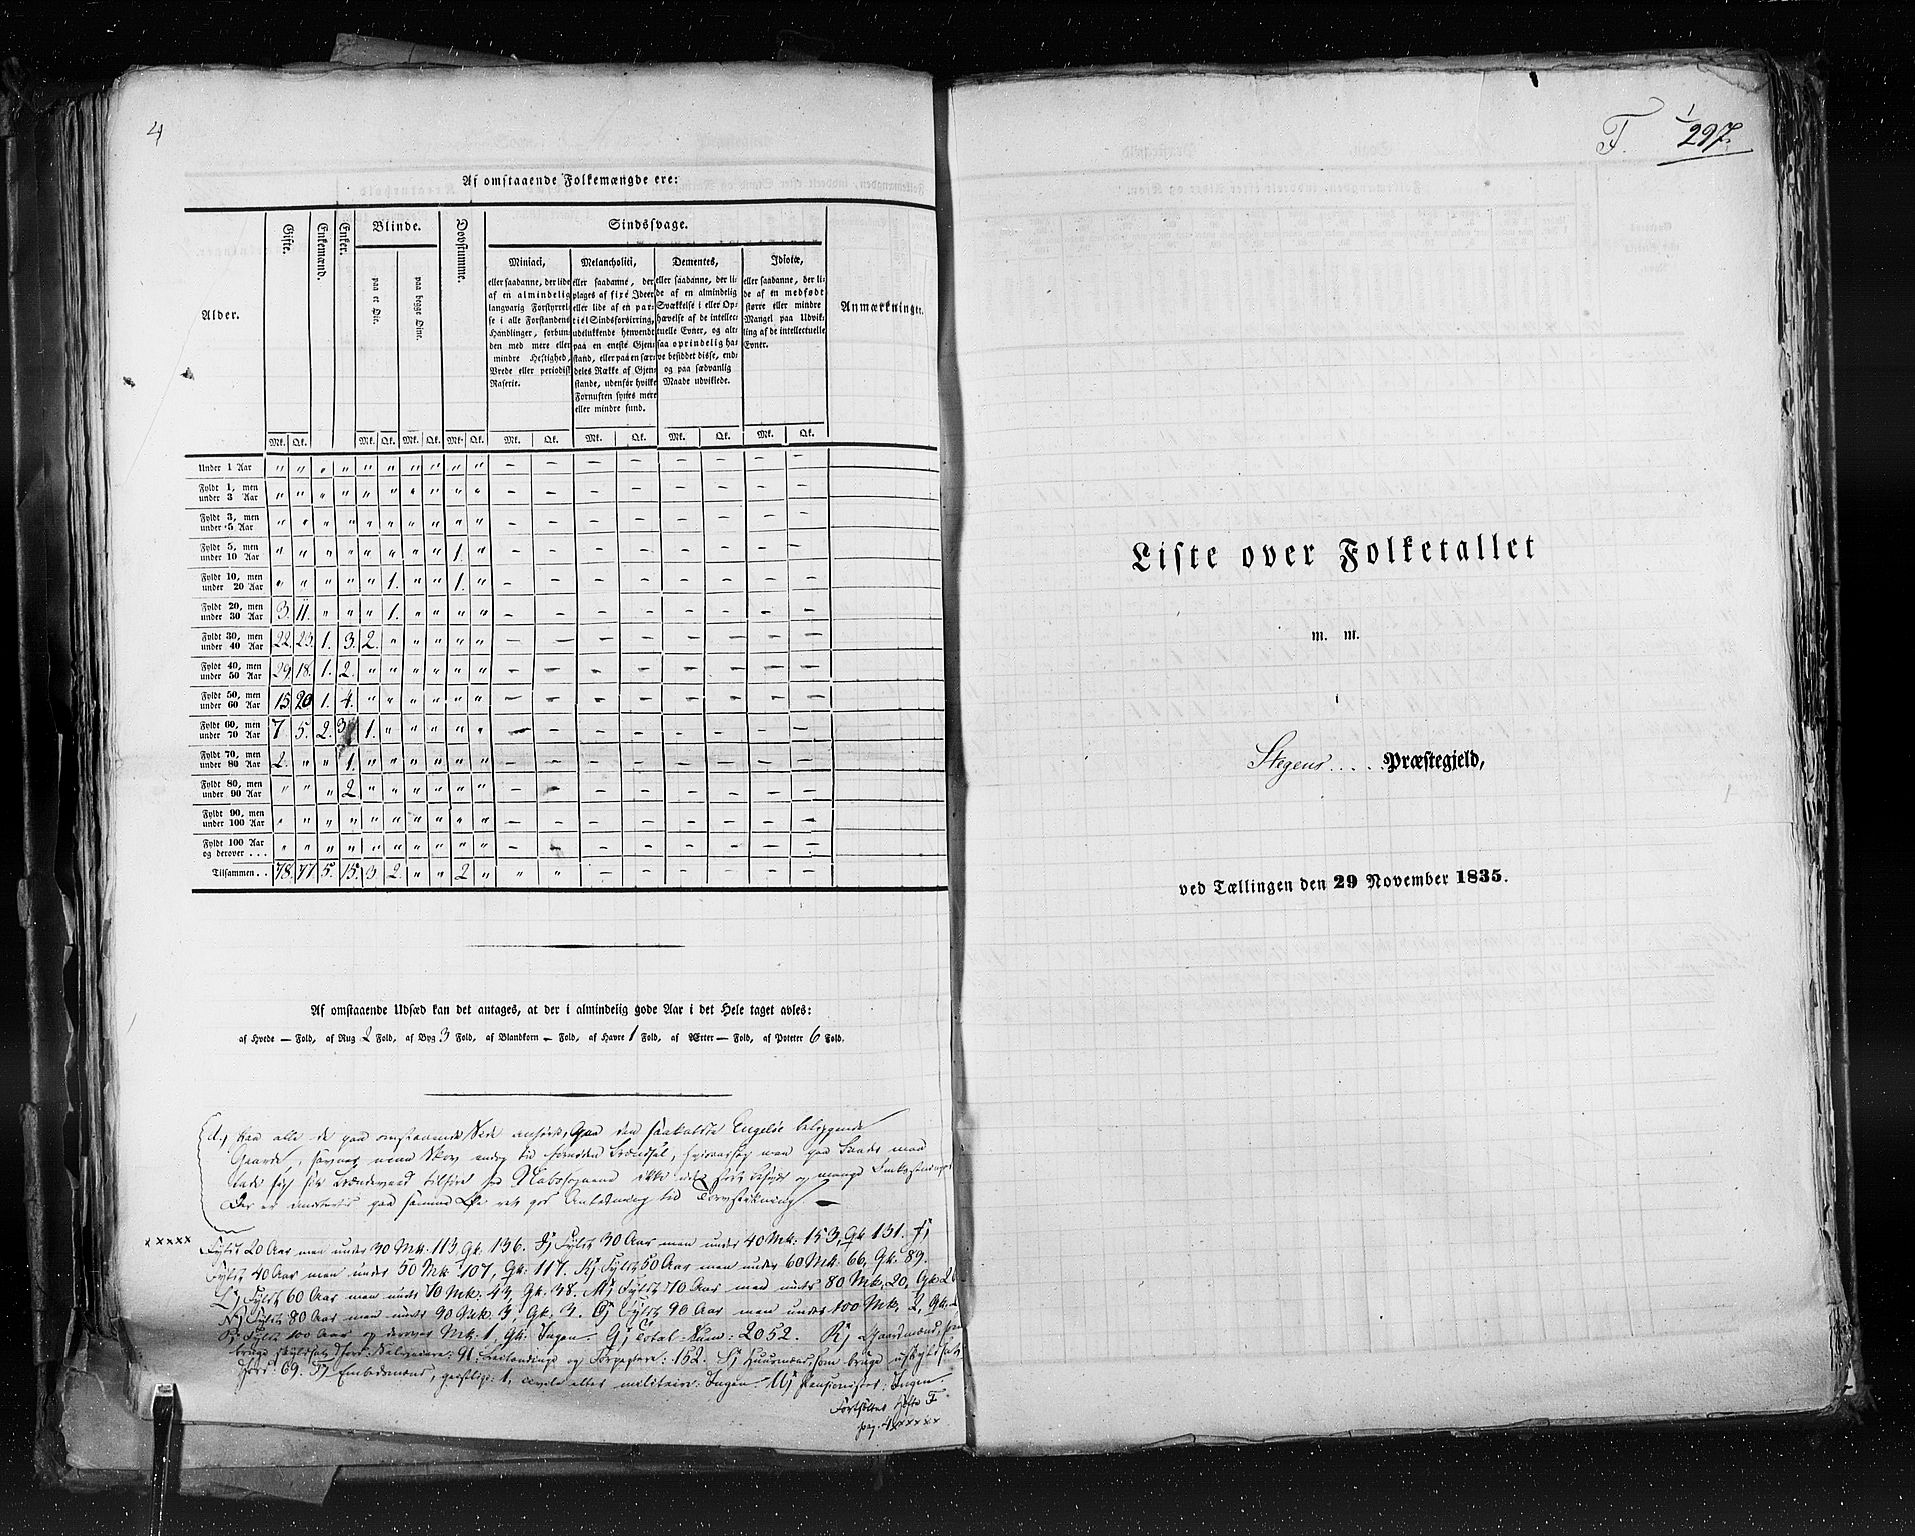 4
Af omstaaende Folkemængde ere:
Alder. Gifte. Enkemænd. Enker. Blinde. Døvstumme. Sindssvage. Anmærkninger.
paa et Øie. paa begge Øine.
Miniaci, Melancholici, Dementes, Idiotæ,
eller saadanne, der lide af en almindelig langvarig Forstyrrelse i alle Forstandens Handlinger, forbunden med mere eller mindre Heftighed, Vrede eller periodisk Raserie.
eller saadanne, der plages af fixe Ideer eller lide af en partiel Sindsforvirring, udelukkende henvendt paa en eneste Gjenstand, eller paa en særdeles Række af Gjenstande, udenfor hvilke Fornuften synes mere eller mindre sund.
eller saadanne, der lide af en almindelig Svækkelse i eller Ophævelse af de intellectuelle Evner, og altsaa oprindelig have besiddet disse, endog paa sædvanlig Maade udviklede.
eller saadanne, der lide af en medfødt større eller mindre Mangel paa Udvikling af de intellectuelle Evner.
Mk. Qk. Mk. Qk. Mk. Qk. Mk. Qk. Mk. Qk. Mk. Qk. Mk. Qk. Mk. Qk.
Under 1 Aar " " " " " " " " " " — — — — — — — —
Fyldt 1, men under 3 Aar " " " " " " " " " " — — — — — — — —
Fyldt 3, men under 5 Aar " " " " " " " " " " — — — — — — — —
Fyldt 5, men under 10 Aar " " " " " " " " 1. " — — — — — — — —
Fyldt 10, men under 20 Aar " " " " " 1. " " 1. " — — — — — — — —
Fyldt 20, men under 30 Aar 3. 11. " " " 1. " " " " — — — — — — — —
Fyldt 30, men under 40 Aar 22. 23. 1. 3. 2. " " " " " — — — — — — — —
Fyldt 40, men under 50 Aar 29. 18. 1. 2. " " " " " " — — — — — — — —
Fyldt 50, men under 60 Aar 15 20 1. 4. " " " " " " — — — — — — — —
Fyldt 60, men under 70 Aar 7. 5. 2. 3 1. " " " " " — — — — — — — —
Fyldt 70, men under 80 Aar 2. " " 1. " " " " " " — — — — — — — —
Fyldt 80, men under 90 Aar " " " 2 " " " " " " — — — — — — — —
Fyldt 90, men under 100 Aar " " " " " " " " " " — — — — — — — —
Fyldt 100 Aar og derover . . . " " " " " " " " " " — — — — — — — —
Tilsammen . . 78. 77. 5. 15. 3 2. " " 2 " " " — — — — — —
Af omstaaende Udsæd kan det antages, at der i almindelig gode Aar i det Hele taget avles:
af Hvede — Fold, af Rug 2 Fold, af Byg 3 Fold, af Blandkorn — Fold, af Havre 1 Fold, af Ærter — Fold, af Poteter 6 Fold.
d.) Paa alle de paa omstaaende Side anførte, paa den saakaldte Engeløe beliggende
Gaarde, savnes nemn Skov endog til fornøden Brændsel, hvorfor man paa Landet maa
lade sig sin Brændeved tilføre fra Nabosognene ikke uden stort Besvær og mange Omkostninger
Der er imidlertid paa samme Øe ret god Anledning til Torvstikning. —
xxxxx Fyldt 20 Aar men under 30 Mk. 113 Qk. 136. I) Fyldt 30 Aar men under 40 Mk: 153, Qk 131. J)
Fyldt 40 Aar men under 50 Mk 107, Qk. 117. K) Fyldt 50 Aar men under 60 Mk: 66, Qk. 89.
L) Fyldt 60 Aar men under 70 Mk: 43, Qk. 38. M) Fyldt 70 Aar men under 80 Mk. 20, Qk 26
N) Fyldt 80 Aar men under 90 Mk 3, Qk. 3. O) Fyldt 90 Aar men under 100 Mk, 2, Qk. 2
P) Fyldt 100 Aar og derover Mk. 1, Qk. Ingen. Q) Total-Sum: 2052. R) Gaardmænd, som
bruge skyldsat Jord: Selveiere: 91, Leilændinge og Forpagtere: 152. S) Huusmænd, som bruge uskyldsat
Jord: 69. T) Embedsmænd, geistlige: 1, civile eller militaire: Ingen. U) Pensionister: Ingen.
Fortsættes Hefte F
pag. 4 xxxxxx
F. 1/297.
Liste over Folketallet
m. m.
i
Stegens . . . . Præstegjeld,
ved Tællingen den 29 November 1835.